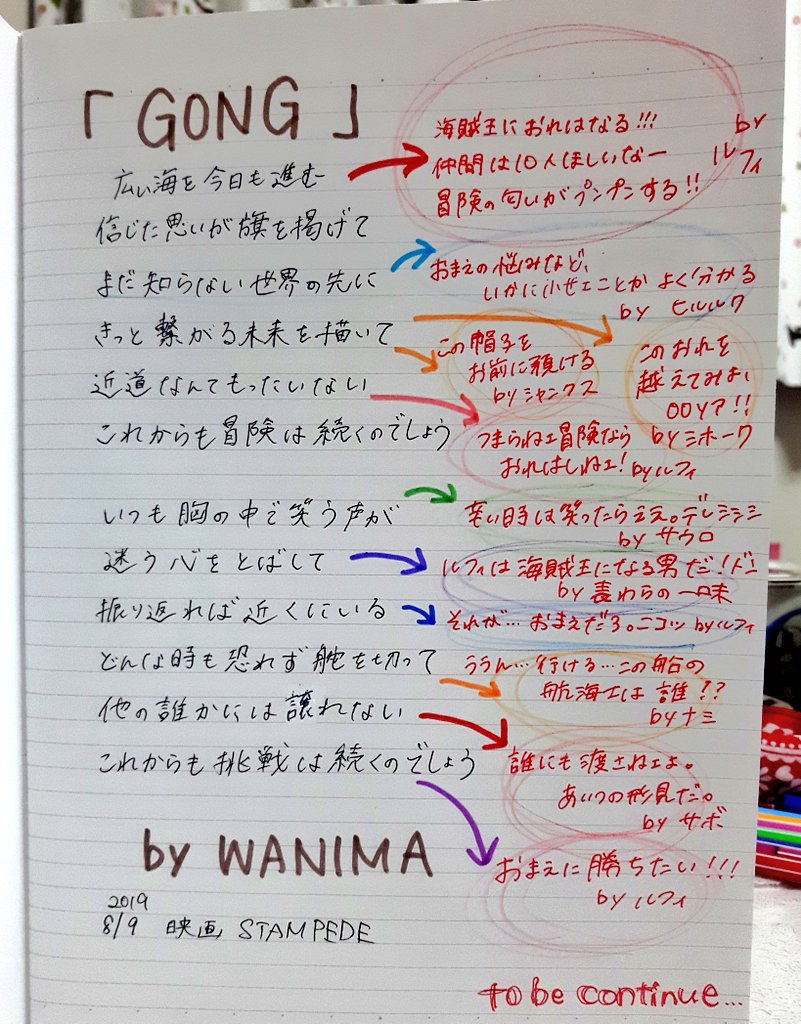 「GONG」
広い海を今日も進む
信じた思いが旗を掲げて
まだ知らない世界の先に
きっと繋がる未来を描いて
近道なんてもったいない
これからも冒険は続くのでしょう
いつも胸の中で笑う声が
迷う心をとばして
振り返れば近くにいる
どんな時も恐れず舵を切って
他の誰かには譲れない
これからも挑戦は続くのでしょう
by WANIMA
2019
8/9 映画 STAMPEDE
海賊王におれはなる!!!
仲間は10人ほしいなー
冒険の匂いがプンプンする!!
by ルフィ
おまえの悩みなど、
いかに小せェことか よく分かる
by ヒルルク
この帽子を
お前に預ける
by シャンクス
このおれを
越えてみよ、
○○Yア!!
by ミホーク
つまらねェ冒険なら
おれはしねェ! by ルフィ
辛い時は笑ったらええ。デレシシシ
by サウロ
ルフィは海賊王になる男だ!ドン
by 麦わらの一味
それが…おまえだろ。ニコッ by ルフィ
ううん…行ける…この船の
航海士は誰!?
by ナミ
誰にも渡さねェよ。
あいつの形見だ。
by サボ
おまえに勝ちたい!!!
by ルフィ
to be continue...